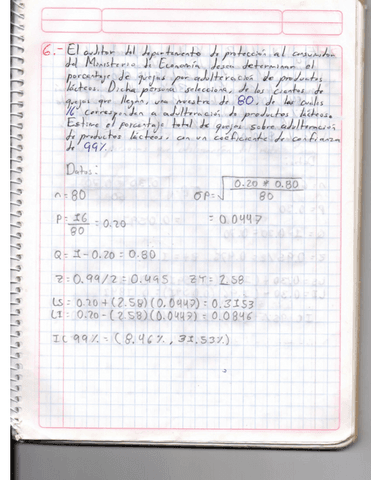 6.- El auditor del departamento de protección al consumidor
del Ministerio de Economía desea determinar el
porcentaje de quejas por adulteración de productos
lácteos. Dicha persona selecciona, de los cientos de
quejas que llegan, una muestra de 80, de las cuales
16 corresponden a adulteración de productos lácteos.
Estime el porcentaje total de quejas sobre adulteración
de productos lácteos, con un coeficiente de confianza
de 99%.
Datos:
n = 80 σp = √ 0.20 * 0.80 / 80
P = 16/80 = 0.20 = 0.0447
Q = 1 - 0.20 = 0.80
Z = 0.99/2 = 0.495 ZT = 2.58
LS = 0.20 + (2.58)(0.0447) = 0.3153
LI = 0.20 - (2.58)(0.0447) = 0.0846
IC 99% = (8.46%, 31.53%)